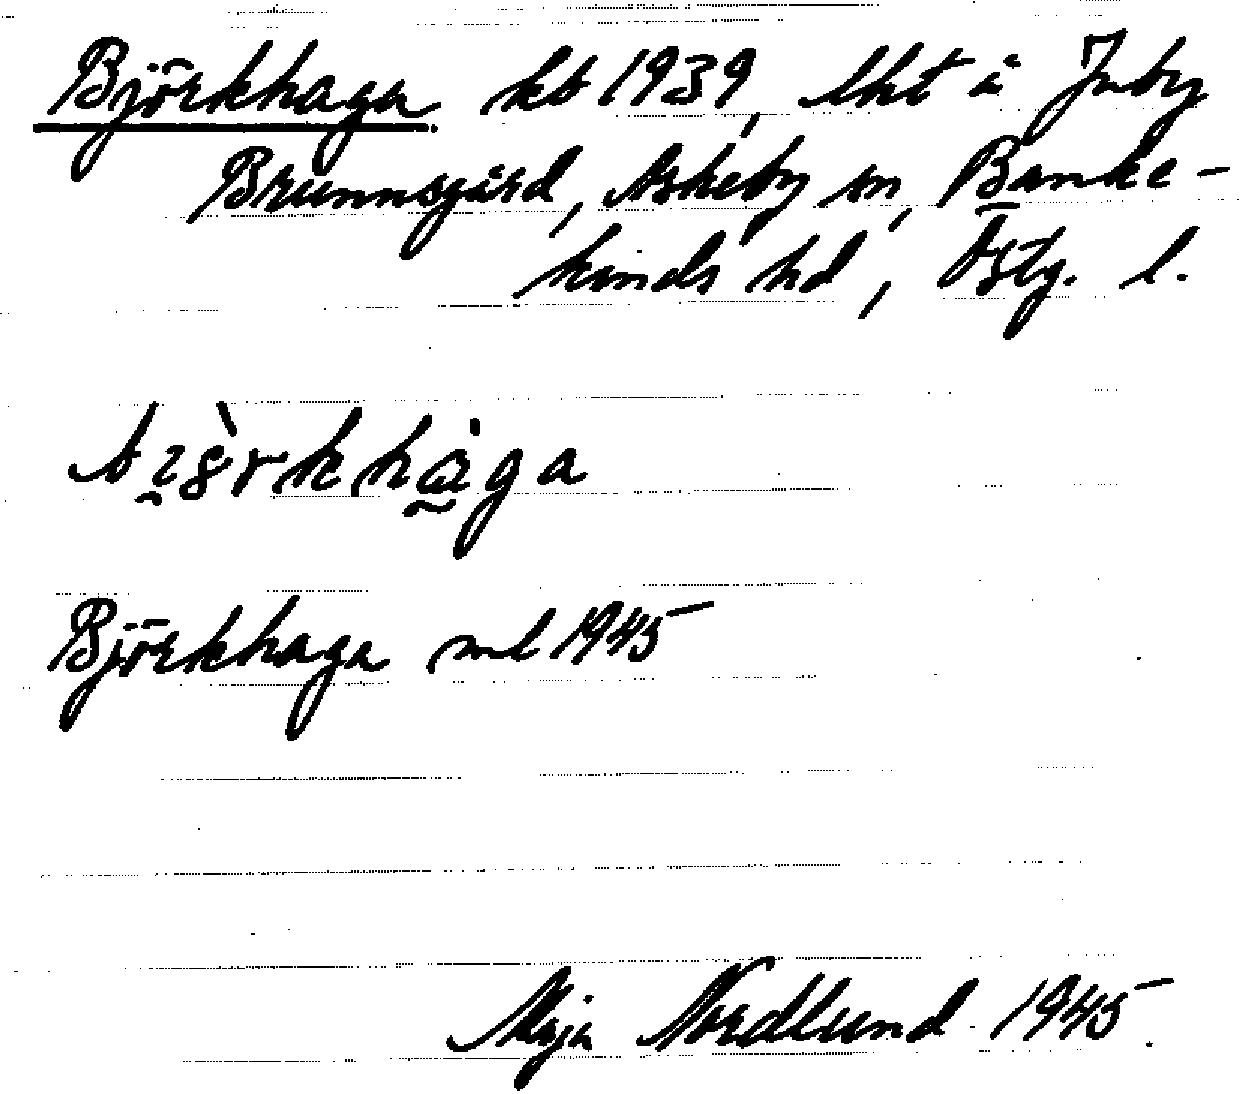 Björkhaga kb 1939, lht å Juby
Brunnsgård, Askeby sn, Banke-
kinds hd, Östg. l.
Björkhaga ml 1945
Maja Nordlund 1945.